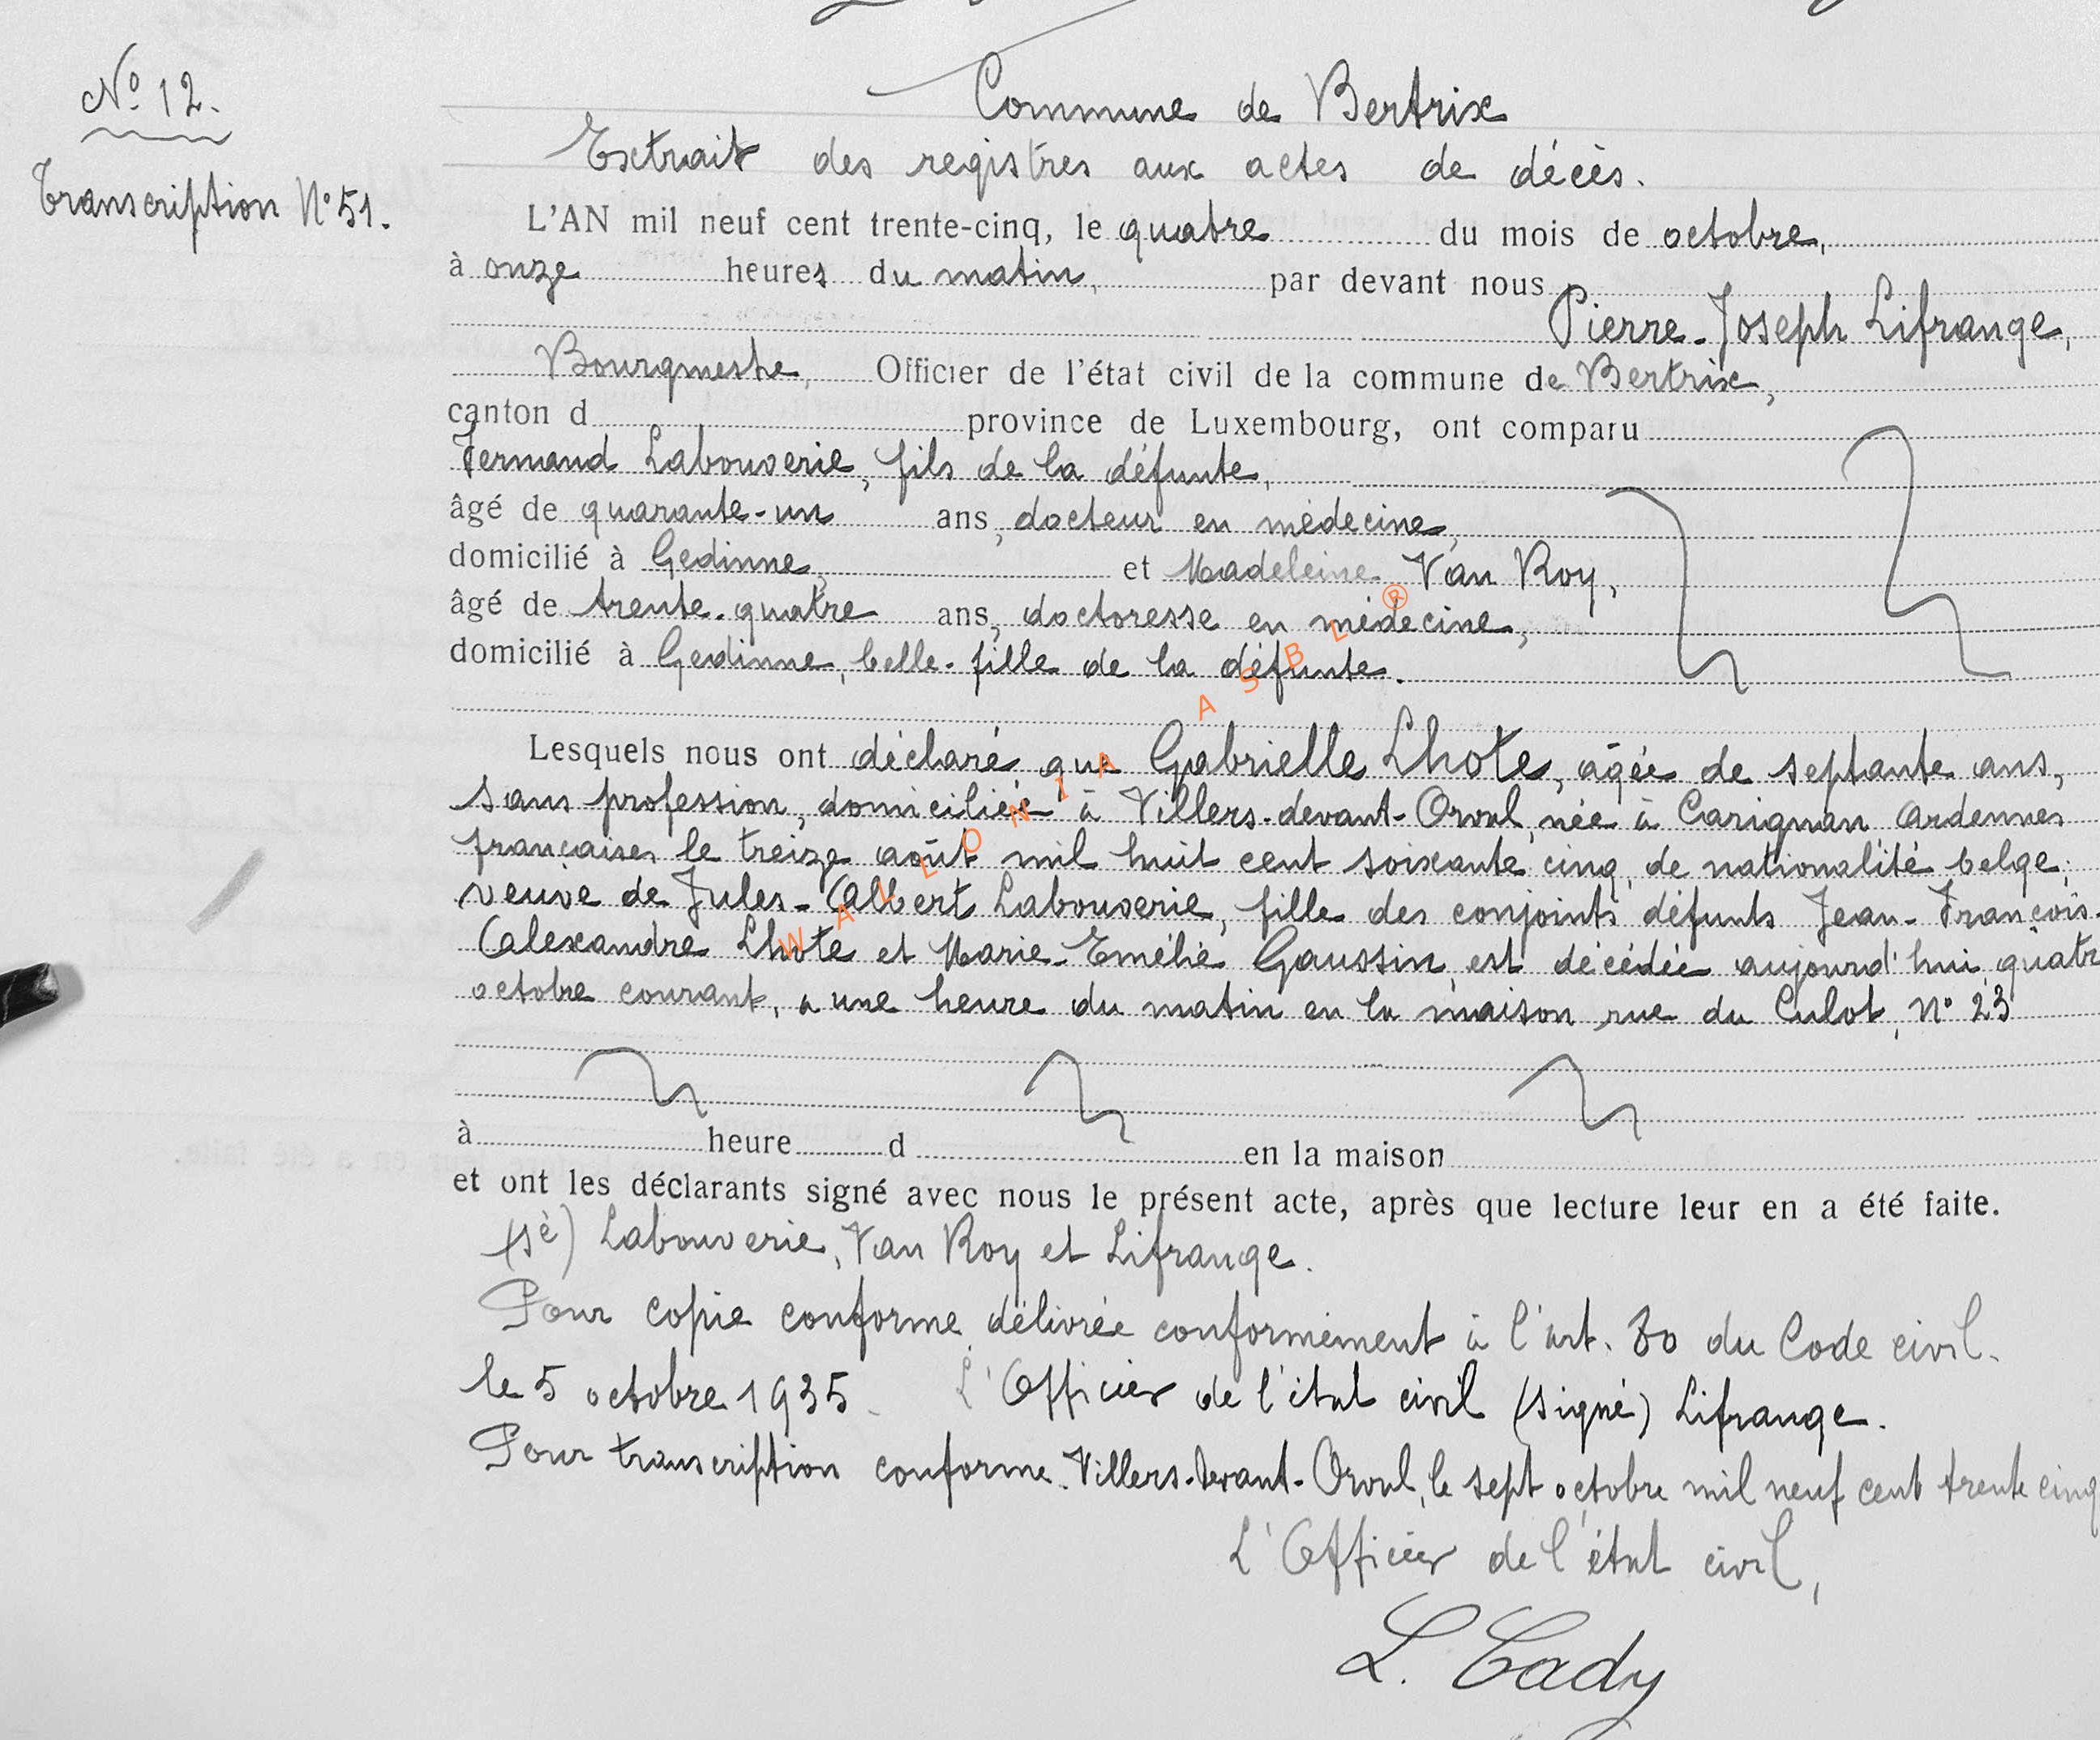 N° 12.
Commune de Bertrix
Extrait des registres aux actes de décès.
Transcription N° 51.
L'AN mil neuf cent trente-cinq, le quatre du mois de octobre,
à onze heures du matin, par devant nous
Pierre-Joseph Lifrange,
Bourgmestre, Officier de l'état civil de la commune de Bertrix,
canton d province de Luxembourg, ont comparu
Fernand Labouverie, fils de la défunte,
âgé de quarante-un ans, docteur en médecine,
domicilié à Gedinne, et Madeleine Van Roy,
âgé de trente-quatre ans, doctoresse en médecine,
domicilié à Gedinne, belle-fille de la défunte.
Lesquels nous ont déclaré que Gabrielle Lhote, âgée de septante ans,
sans profession, domiciliée à Villers-devant-Orval, née à Carignan Ardennes
françaises le treize août mil huit cent soixante cinq, de nationalité belge,
veuve de Jules-Albert Labouverie, fille des conjoints défunts Jean-François-
Alexandre Lhote et Marie-Emélie Gaussin, est décédée aujourd'hui quatre
octobre courant, à une heure du matin en la maison rue du Culot, N° 23
à heure d en la maison
et ont les déclarants signé avec nous le présent acte, après que lecture leur en a été faite.
(sé) Labouverie, Van Roy et Lifrange.
Pour copie conforme délivrée conformément à l'art. 80 du Code civil.
le 5 octobre 1935. L'Officier de l'état civil (signé) Lifrange.
Pour transcription conforme. Villers-devant-Orval, le sept octobre mil neuf cent trente cinq
L'Officier de l'état civil,
L. Cady
WALLONIA ASBL ®